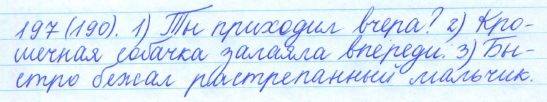 197(190). 1) Ты приходил вчера? 2) Кро-
шечная собачка залаяла впереди. 3) Бы-
стро бежал растрепанный мальчик.